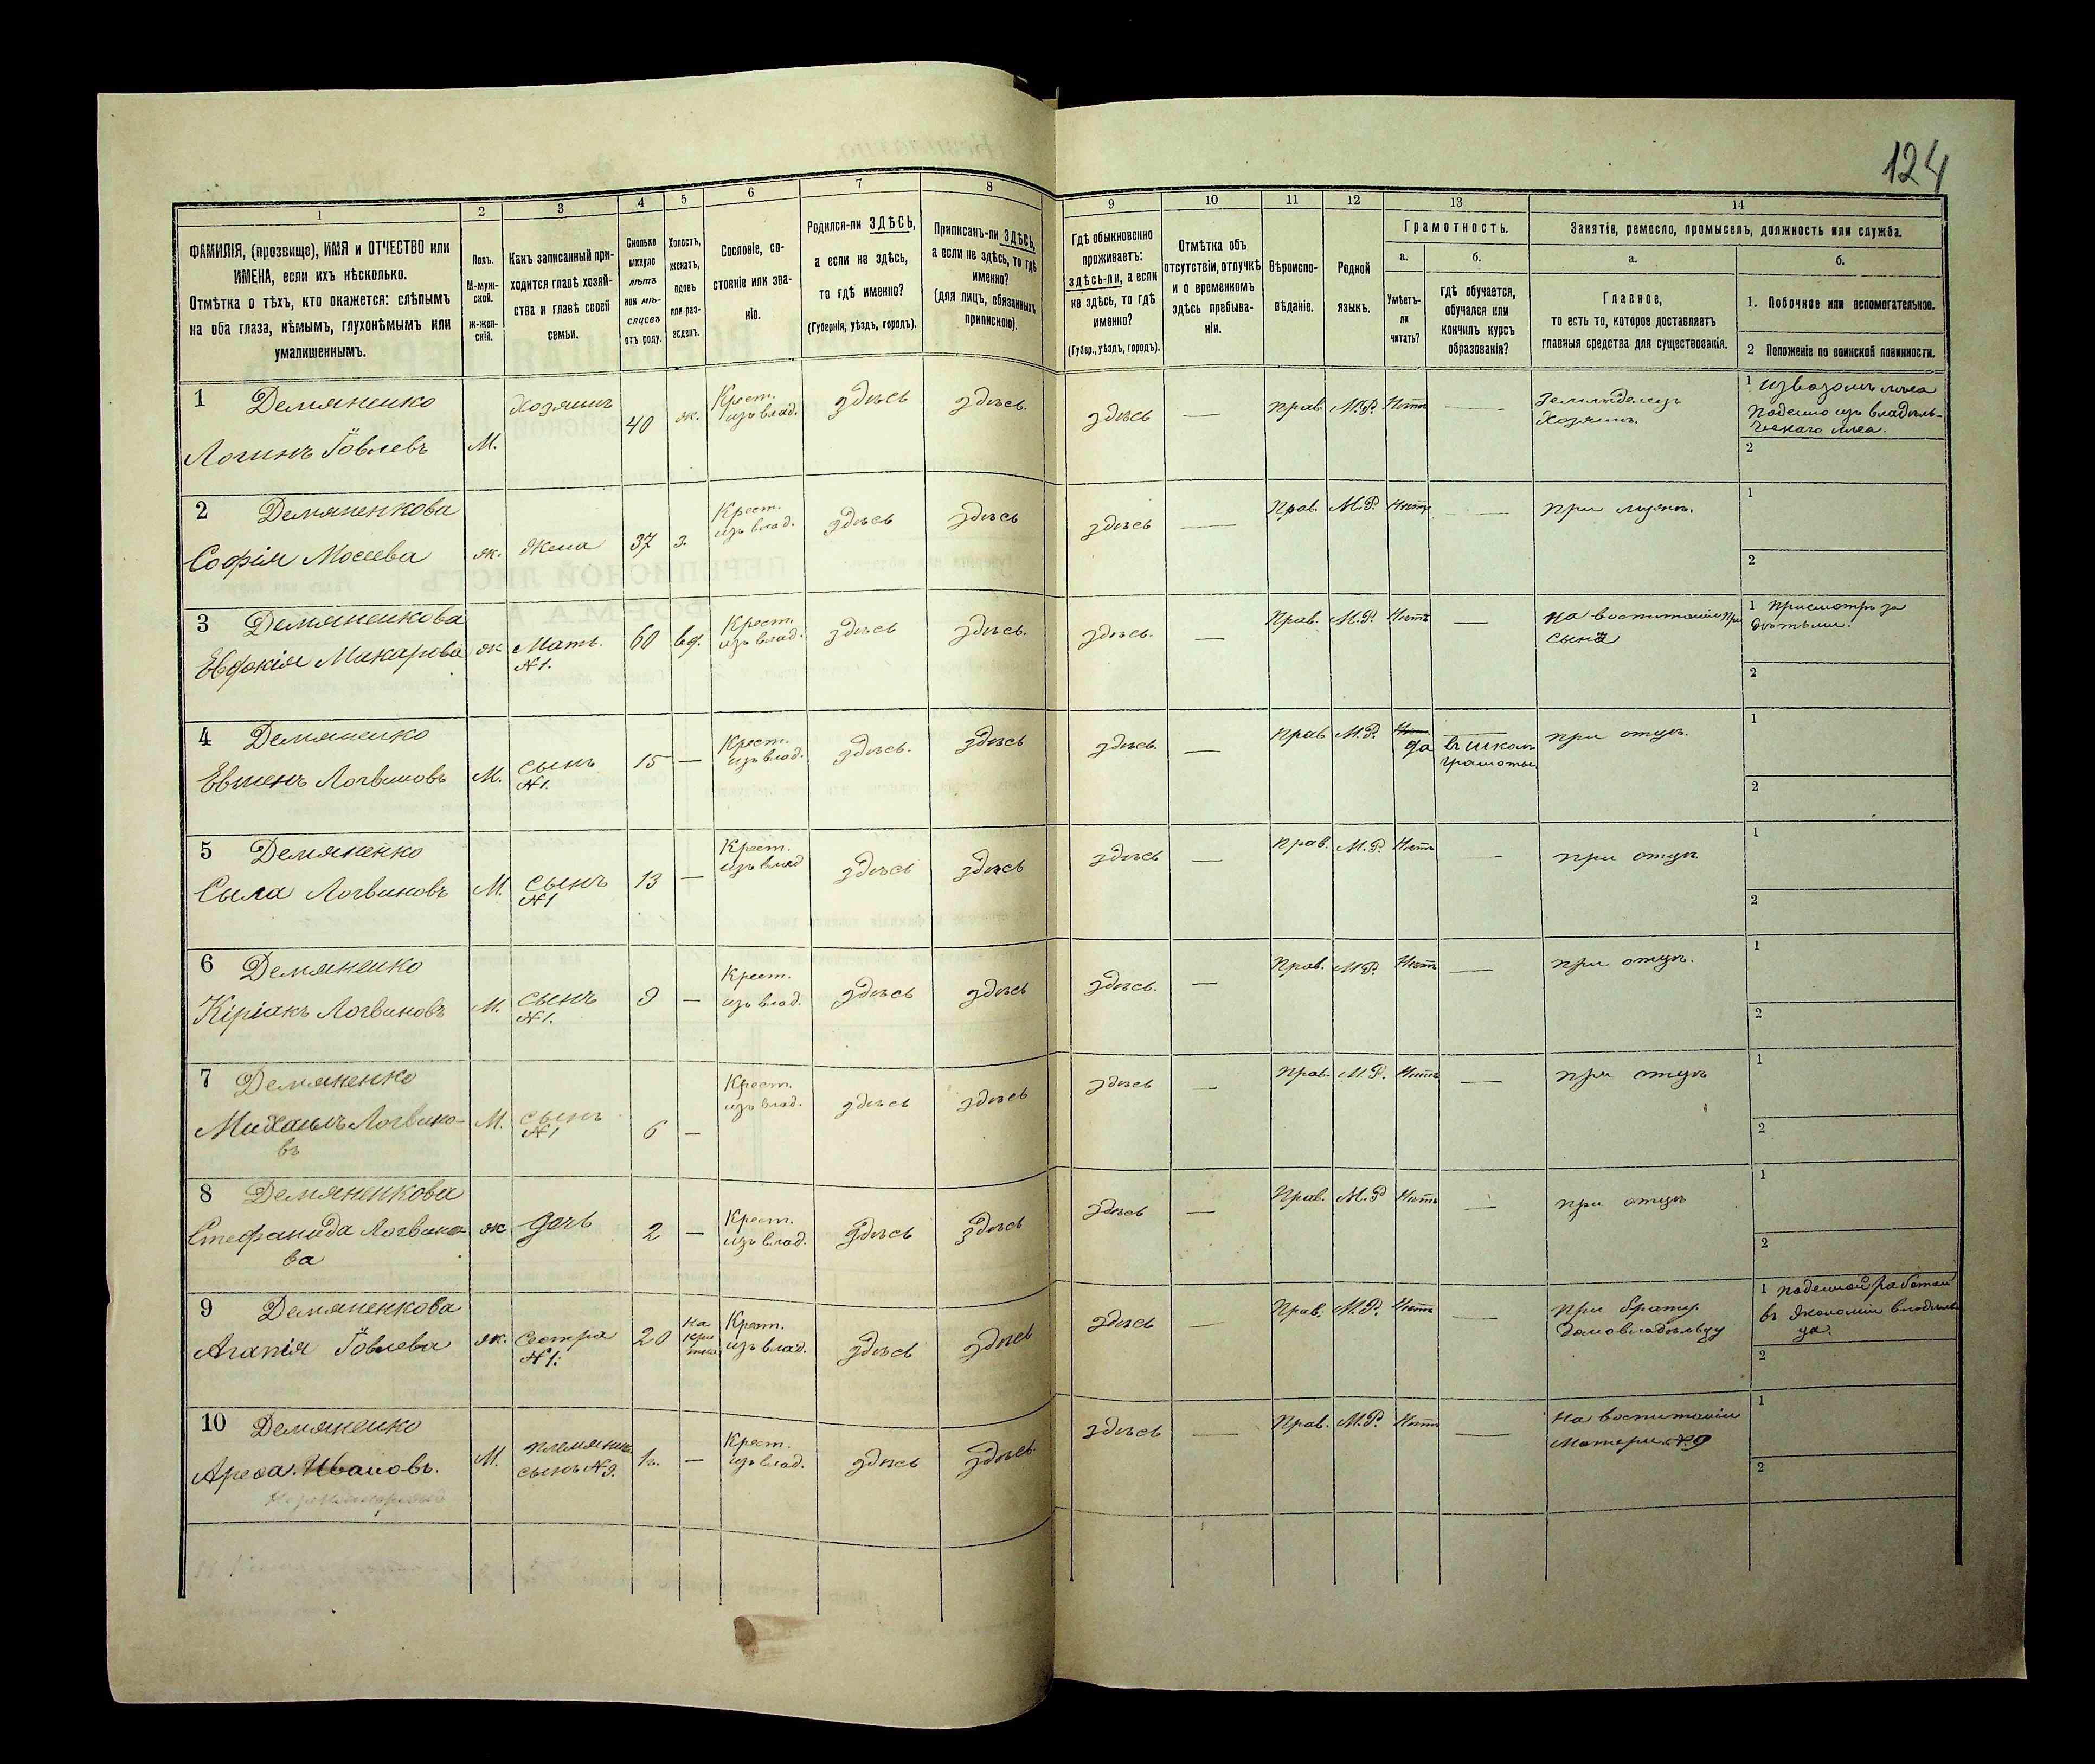 124
1 2 3 4 5 6 7 8 9 10 11 12 13 14
ФАМИЛІЯ, (прозвище), ИМЯ и ОТЧЕСТВО или
ИМЕНА, если ихъ нѣсколько.
Отмѣтка о тѣхъ, кто окажется: слѣпымъ
на оба глаза, нѣмымъ, глухонѣмымъ или
умалишеннымъ.
Полъ.
М-муж-
ской.
ж-жен-
скій.
Какъ записанный при-
ходится главѣ хозяй-
ства и главѣ своей
семьи.
Сколько
минуло
лѣтъ
или мѣ-
сяцевъ
отъ роду.
Холостъ,
женатъ,
вдовъ
или раз-
веденъ.
Сословіе, со-
стояніе или зва-
ніе.
Родился-ли ЗДѢСЬ,
а если не здѣсь,
то гдѣ именно?
(Губернія, уѣздъ, городъ).
Приписанъ-ли ЗДѢСЬ,
а если не здѣсь, то гдѣ
именно?
(для лицъ, обязанныхъ
припискою).
Гдѣ обыкновенно
проживаетъ:
здѣсь-ли, а если
не здѣсь, то гдѣ
именно?
(Губер., уѣздъ, городъ).
Отмѣтка объ
отсутствіи, отлучкѣ
и о временномъ
здѣсь пребыва-
ніи.
Вѣроиспо-
вѣданіе.
Родной
языкъ.
Грамотность.
а.
Умѣетъ-
ли
читать?
б.
гдѣ обучается,
обучался или
кончилъ курсъ
образованія?
Занятія, ремесло, промыселъ, должность или служба.
а.
Главное,
то есть то, которое доставляетъ
главныя средства для существованія.
б.
1. Побочное или вспомогательное.
2 Положеніе по воинской повинности.
1 Демяненко
Логинъ Іовлевъ
М.
Хозяинъ
40
ж.
Крест.
изъ влад.
здѣсь
здѣсь.
здѣсь
—
Прав.
М.Р.
Нѣтъ
—
Земледѣлецъ
Хозяинъ.
1 извозомъ лѣса
Поденно изъ владѣль-
ческаго лѣса.
2
2 Демяненкова
Софія Мосеева
ж.
Жена
37
з.
Крест.
изъ влад.
здѣсь
здѣсь
здѣсь
—
Прав.
М.Р.
Нѣтъ
—
при мужѣ.
1
2
3 Демяненкова
Евдокія Макарова
ж
Мать.
№1.
60
вд.
Крест.
изъ влад.
здѣсь
здѣсь.
здѣсь.
—
Прав.
М.Р.
Нѣтъ
—
На воспитаніи при
сынѣ
1 Присмотръ за
дѣтьми.
2
4 Демяненко
Евменъ Логвиновъ
М.
сынъ
№1.
15
—
Крест.
изъ влад.
здѣсь.
здѣсь
здѣсь.
—
Прав
М.Р.
Нѣтъ
да
въ школѣ
грамоты.
при отцѣ.
1
2
5 Демяненко
Сыла Логвиновъ
М.
сынъ
№1
13
—
Крест.
изъ влад
здѣсь
здѣсь
здѣсь
—
Прав.
М.Р.
Нѣтъ
—
при отцѣ
1
2
6 Демяненко
Кіріакъ Логвиновъ
М.
сынъ
№1.
9
—
Крест.
изъ влад.
здѣсь
здѣсь
здѣсь.
—
Прав.
М.Р.
Нѣтъ
—
при отцѣ.
1
2
7 Демяненко
Михаилъ Логвино-
въ
М.
сынъ
№1
6
—
Крест.
изъ влад.
здѣсь
здѣсь
здѣсь
—
Прав.
М.Р.
Нѣтъ
—
при отцѣ
1
2
8 Демяненкова
Стефанида Логвино-
ва
ж
дочь
2
—
Крест.
изъ влад.
здѣсь
здѣсь
здѣсь
—
Прав.
М.Р
Нѣтъ
—
при отцѣ
1
2
9 Демяненкова
Агапія Іовлева
ж.
Сестра
№1.
20
Крест.
изъ влад.
здѣсь
здѣсь
здѣсь
—
Прав.
М.Р.
Нѣтъ
—
При братѣ
Домовладѣльцу
1 поденной работой
въ Экономіи владѣль
ца.
2
10 Демяненко
Ивановъ.
М.
племянник
сынъ №9.
—
Крест.
изъ влад.
здѣсь
здѣсь
здѣсь
—
Прав.
М.Р.
Нѣтъ
—
На воспитаніи
Матери №9
1
2